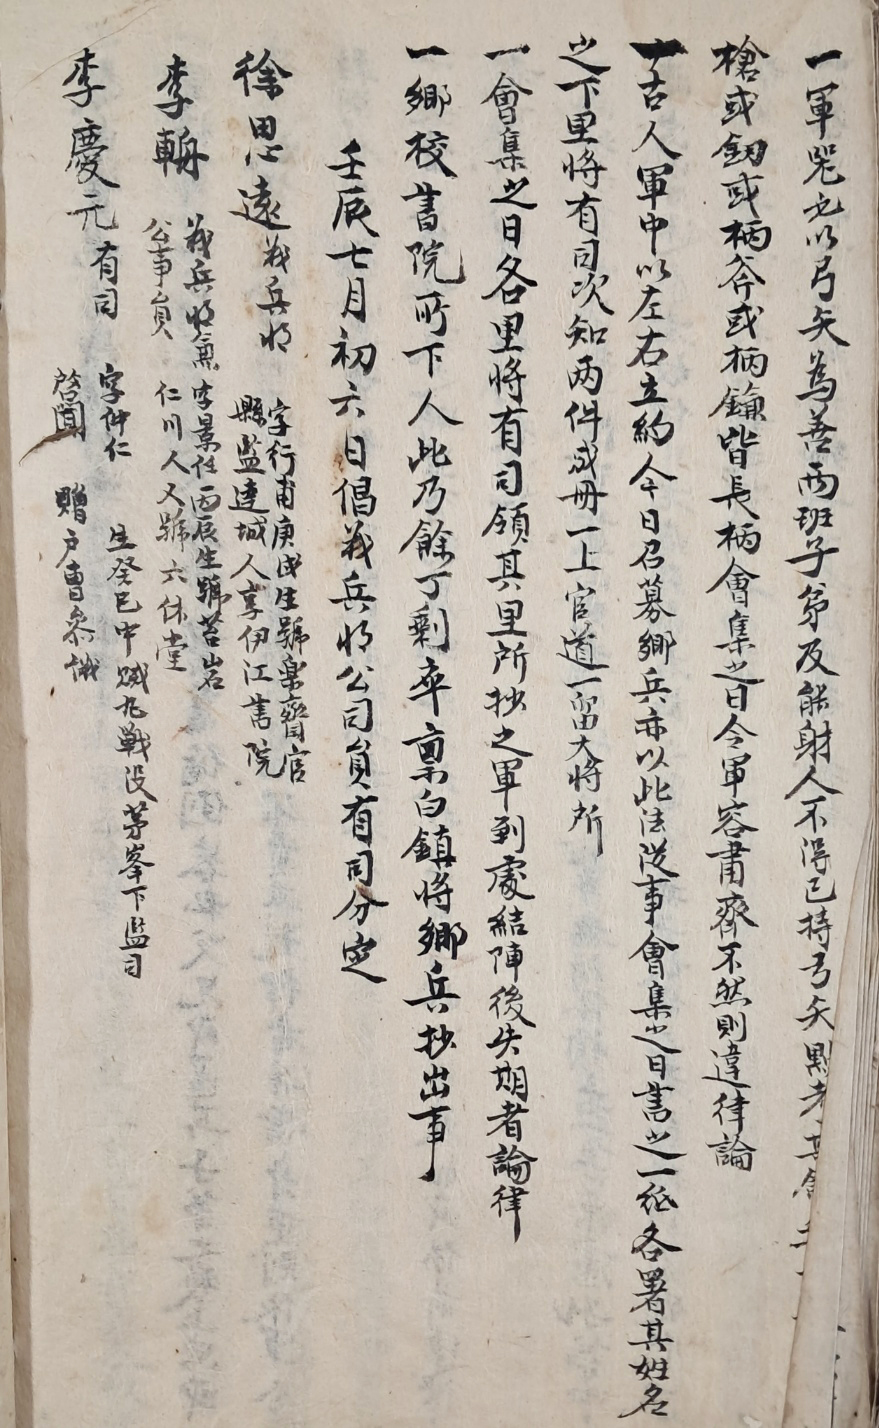 一軍器也以弓矢爲善兩班子弟及能射人不得已持弓矢點考其餘
槍或釰或柄斧或柄鎌皆長柄會集之日令軍容肅齊不然則違律論
一古人軍中以左右立約今日召募鄉兵亦以此法從事會集之日書之一紙各署其姓名
之下里將有司次知兩件成冊一上官道一留大將所
一會集之日各里將有司領其里所抄之軍到處結陣後失期者論律
一鄉校書院所下人此乃餘丁剩卒稟白鎮將鄉兵抄出事
壬辰七月初六日倡義兵將公司員有司分定
徐思遠義兵將 字行甫庚戌生號樂齋官
縣監達城人享伊江書院
李輈 義兵將兼 字景任丙辰生號苔岩
公事員 仁川人又號六休堂
李慶元有司 字仲仁 生癸巳中賊丸戰沒茅峯下監司
啓聞 贈戶曹參議